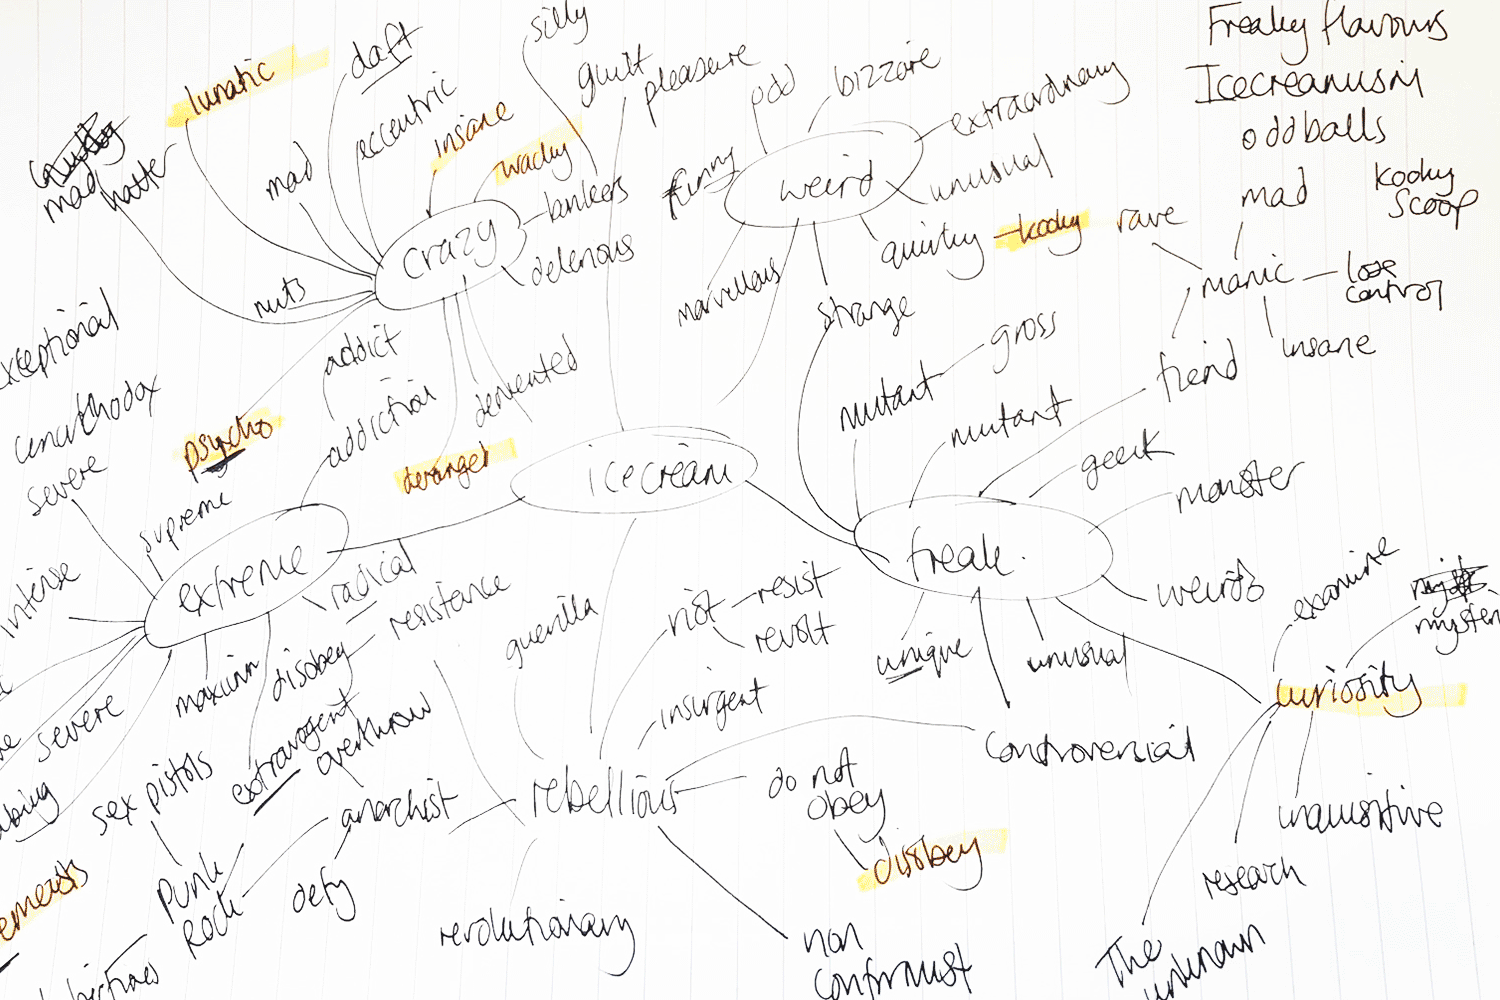 silly
daft
lunatic
guilt
pleasure
odd
bizzare
Freaky flavours
Icecreanusm
oddballs
eccentric
insane
wacky
extraordinary
mad
hatter
mad
funny
weird
unusual
mad
kooky
scoop
bonkers
crazy
quirky
kooky
rave
manic
lose
control
nuts
marvellous
strange
insane
exceptional
addict
gross
mutant
fiend
unorthodox
addiction
demented
mutant
psycho
deranged
icecream
geek
monster
severe
supreme
freak
extreme
radical
resistance
riot
resist
revolt
weirdo
examine
intense
guerilla
unique
unusual
disobey
maximum
insurgent
curiosity
severe
extravagent
overthrow
controversial
sex pistols
anarchist
rebellious
do not
obey
inquisitive
disobey
punk
rock
defy
research
revolutionary
non
conformist
The
unknown